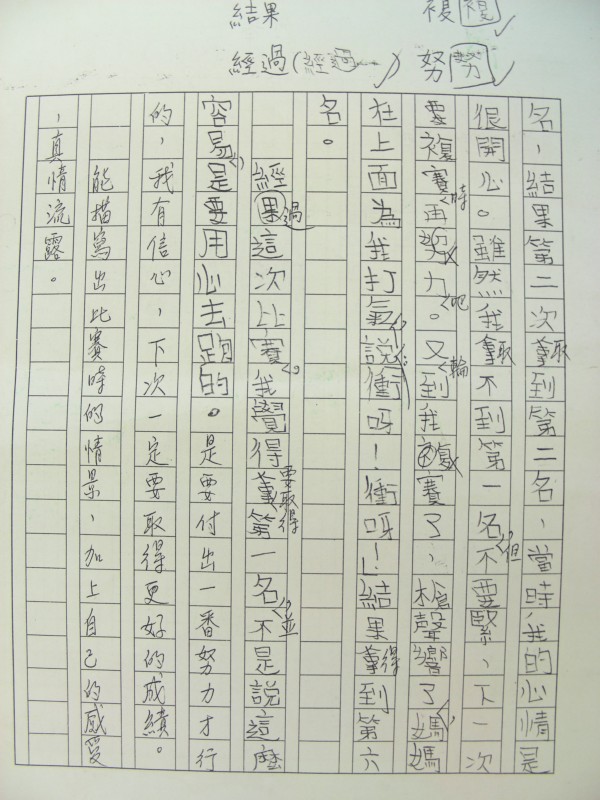 複複
努努
結果
經過(經過)
名，結果第二次拿取到第二名，當時我的心情是
很開心。雖然我拿取不到第一名但不要緊，下一次
要複賽時再努力吧。又輪到我複賽了，槍聲響了，媽媽
在上面為我打氣，說：衝呀！衝呀！」結果拿得到第六
名。
經果過這次比賽。我覺得要取得第一名，並不是說這麼
容易，是要用心去跑的。是要付出一番努力才行
的，我有信心，下次一定要取得更好的成績。
能描寫出比賽時的情景，加上自己的感受
，真情流露。